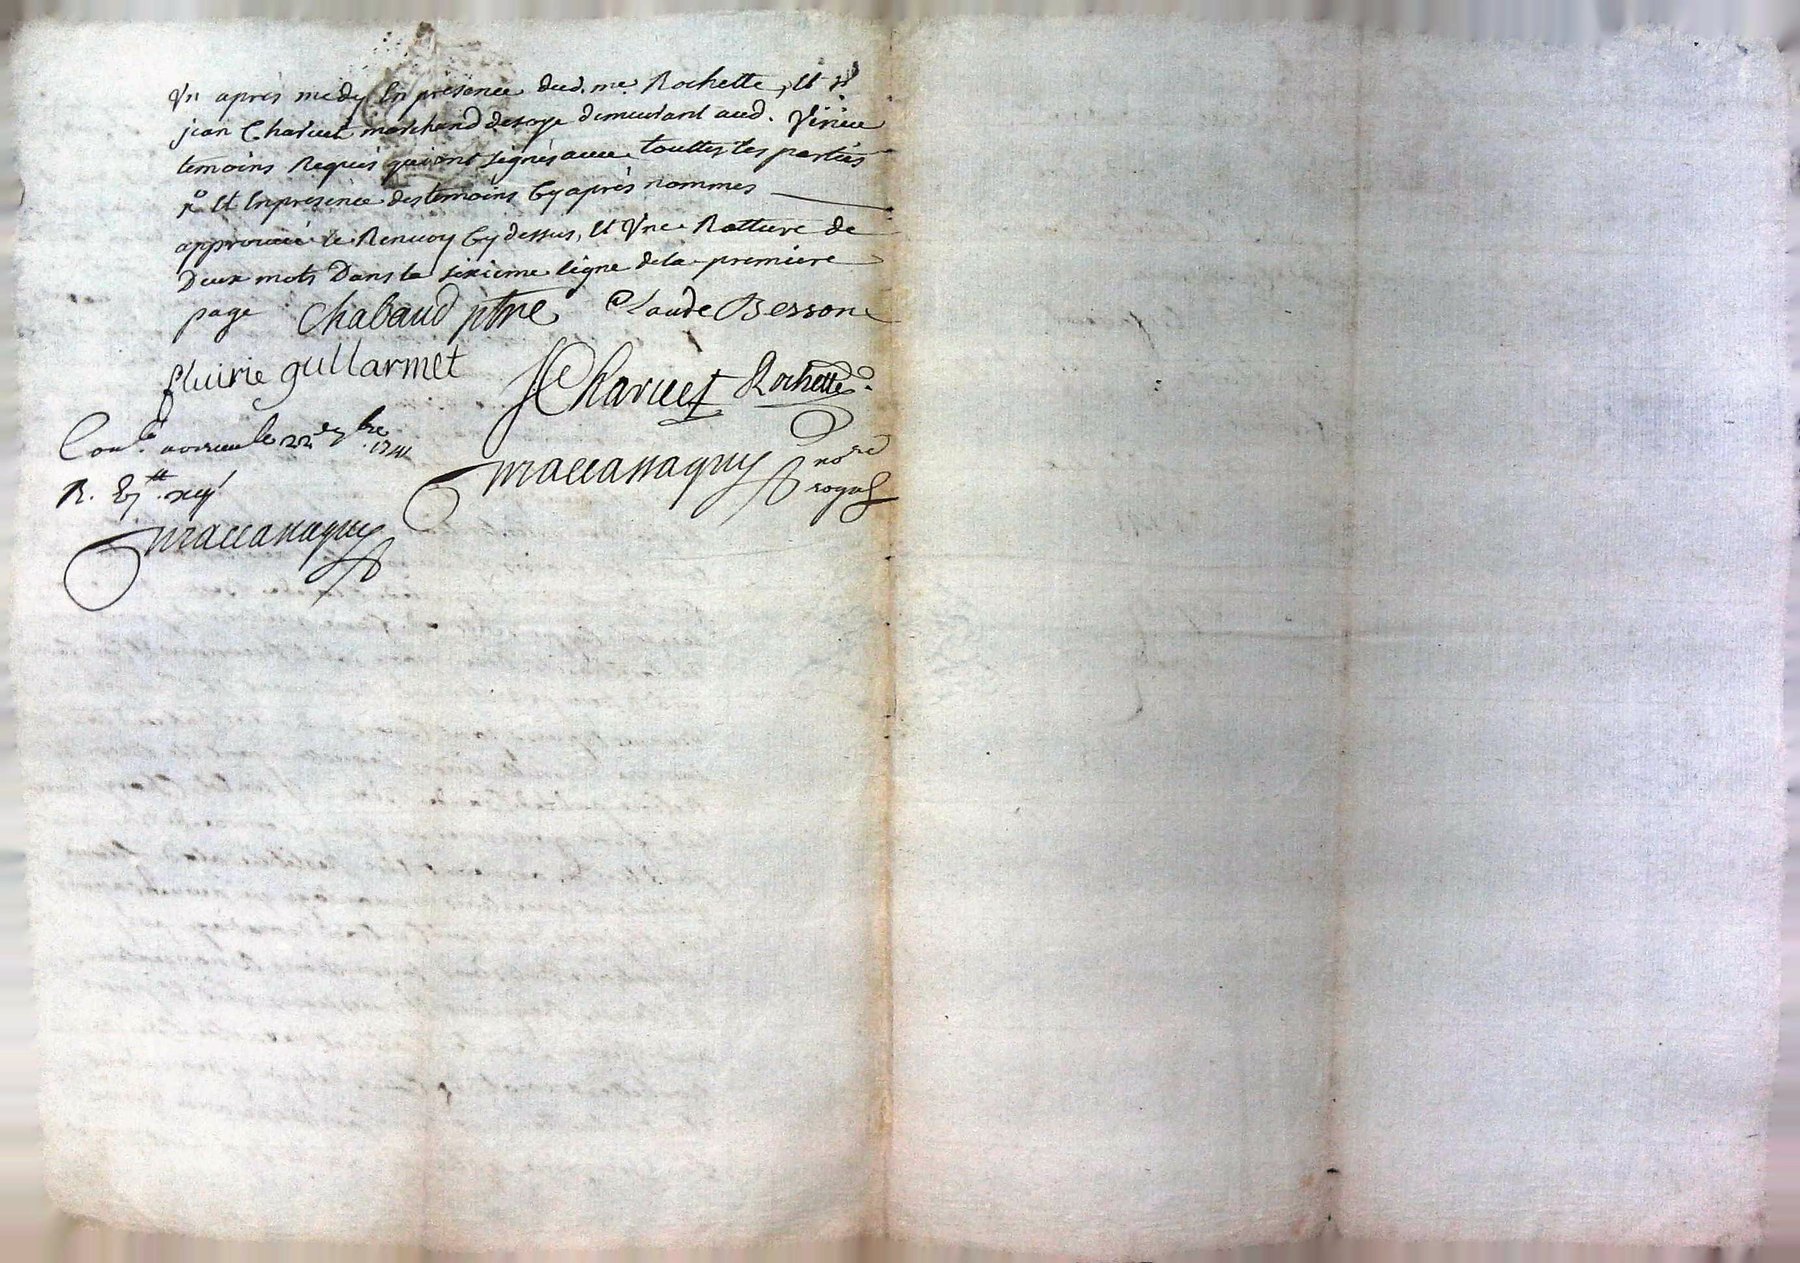 Un après medy En présence dud. me. Rochette, Et
jean Charuet marchand de soye demeurant aud. Virieu
temoins Requis qui ont signés auec touttes les parties
Et En presence des temoins Cy après nommes
approuué le Renuoy Cy dessus, Et Une Ratture de
Deux mots Dans la sixieme ligne de la premiere
page Chabaud ptre Claude Besson
fluirie gullarmet
JCharuet Rochette
Conlé a virieu le 22e 7bre 1741
maccassaguy nore royal
R.
maccassaguy